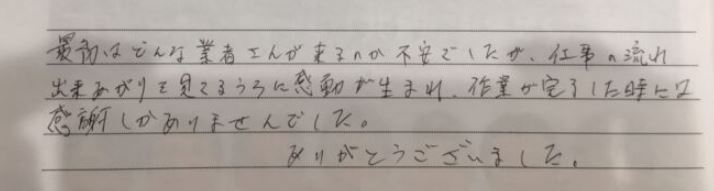 最初はどんな業者さんが来るのか不安でしたが、仕事の流れ
出来あがりを見てるうちに感動が生まれ、作業が完了した時には
感謝しかありませんでした。
ありがとうございました。